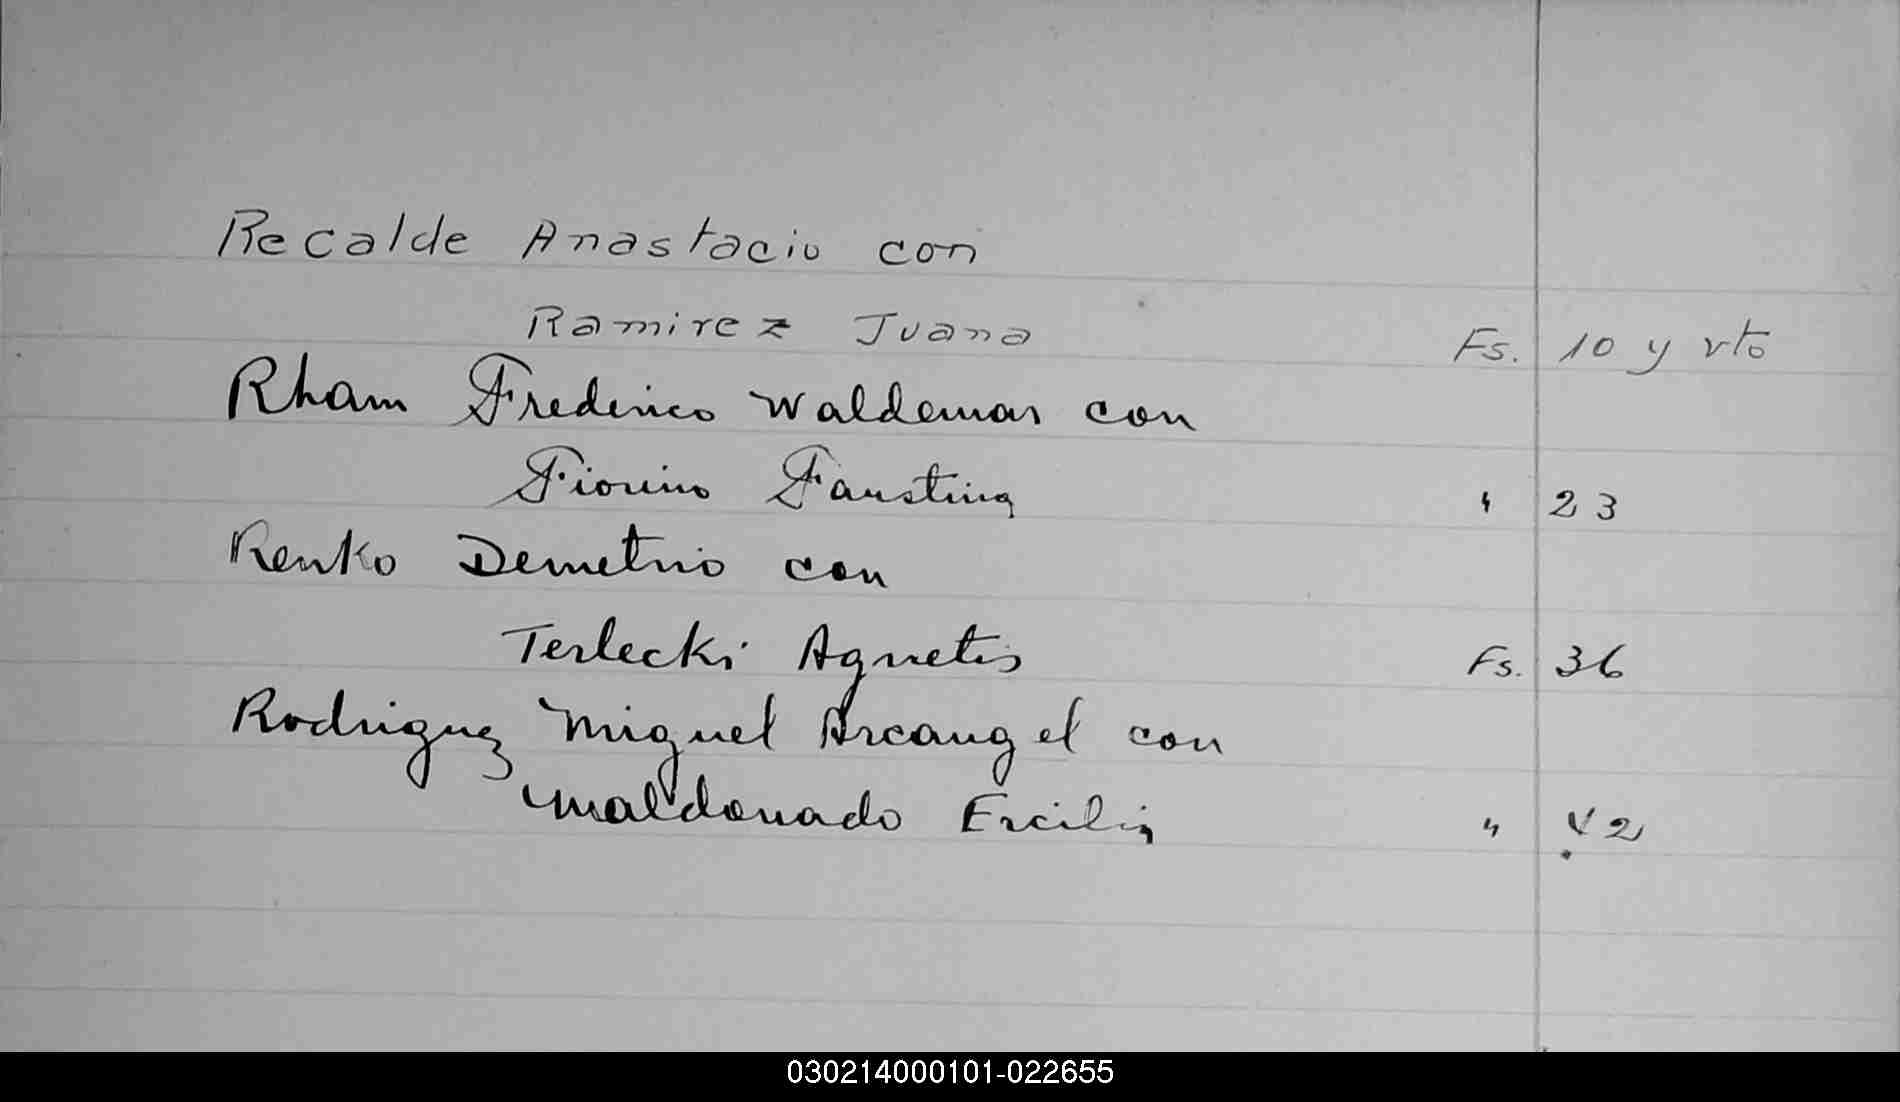 Recalde Anastacio con
Ramirez Juana Fs. 10 y vto
Rham Frederico Waldemar con
Fiorino Faustina " 23
Renko Demetrio con
Terlecki Agnetis Fs. 36
Rodriguez Miguel Arcangel con
Maldonado Ercilia " 42
030214000101-022655